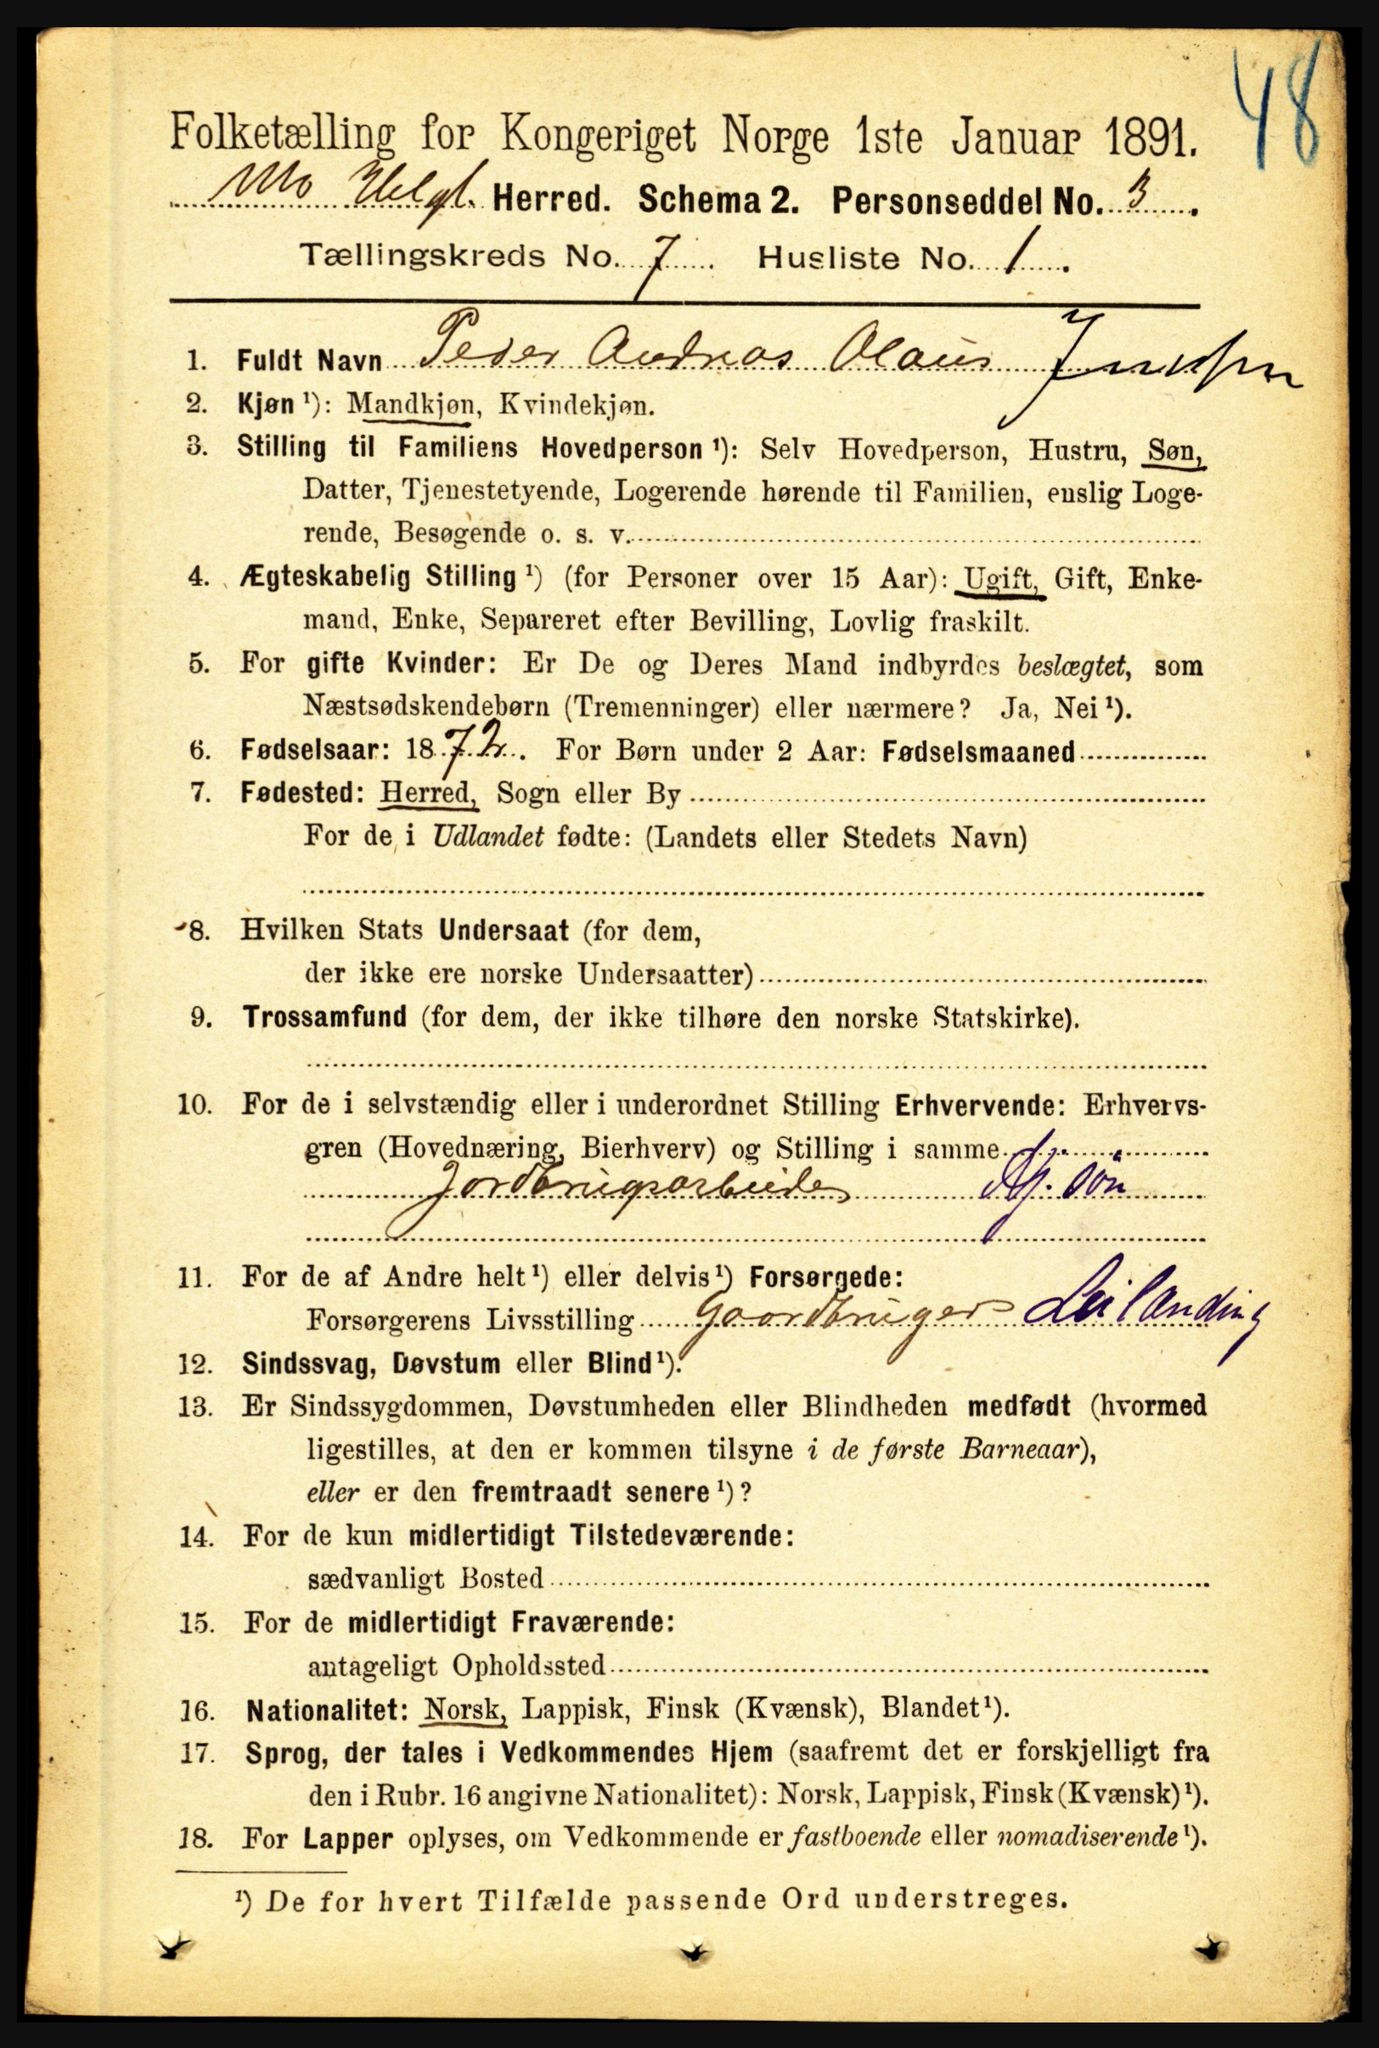 48
Folketælling for Kongeriget Norge 1ste Januar 1891.
Mo Helgl. Herred. Schema 2. Personseddel No. 3.
Tællingskreds No. 7. Husliste No. 1.
1. Fuldt Navn Peder Andreas Olaus Jensen
2. Kjøn ¹): Mandkjøn, Kvindekjøn.
3. Stilling til Familiens Hovedperson ¹): Selv Hovedperson, Hustru, Søn,
Datter, Tjenestetyende, Logerende hørende til Familien, enslig Loge-
rende, Besøgende o. s. v.
4. Ægteskabelig Stilling ¹) (for Personer over 15 Aar): Ugift, Gift, Enke-
mand, Enke, Separeret efter Bevilling, Lovlig fraskilt.
5. For gifte Kvinder: Er De og Deres Mand indbyrdes beslægtet, som
Næstsødskendebørn (Tremenninger) eller nærmere? Ja, Nei ¹).
6. Fødselsaar: 1872. For Børn under 2 Aar: Fødselsmaaned
7. Fødested: Herred, Sogn eller By
For de i Udlandet fødte: (Landets eller Stedets Navn)
8. Hvilken Stats Undersaat (for dem,
der ikke ere norske Undersaatter)
9. Trossamfund (for dem, der ikke tilhøre den norske Statskirke).
10. For de i selvstændig eller i underordnet Stilling Erhvervende: Erhvervs-
gren (Hovednæring, Bierhverv) og Stilling i samme
Jordbrugsarbeide søn
11. For de af Andre helt ¹) eller delvis ¹) Forsørgede:
Forsørgerens Livsstilling Gaardbruger Leilænding
12. Sindssvag, Døvstum eller Blind ¹).
13. Er Sindssygdommen, Døvstumheden eller Blindheden medfødt (hvormed
ligestilles, at den er kommen tilsyne i de første Barneaar),
eller er den fremtraadt senere ¹)?
14. For de kun midlertidigt Tilstedeværende:
sædvanligt Bosted
15. For de midlertidigt Fraværende:
antageligt Opholdssted
16. Nationalitet: Norsk, Lappisk, Finsk (Kvænsk), Blandet ¹).
17. Sprog, der tales i Vedkommendes Hjem (saafremt det er forskjelligt fra
den i Rubr. 16 angivne Nationalitet): Norsk, Lappisk, Finsk (Kvænsk) ¹).
18. For Lapper oplyses, om Vedkommende er fastboende eller nomadiserende ¹).
¹) De for hvert Tilfælde passende Ord understreges.